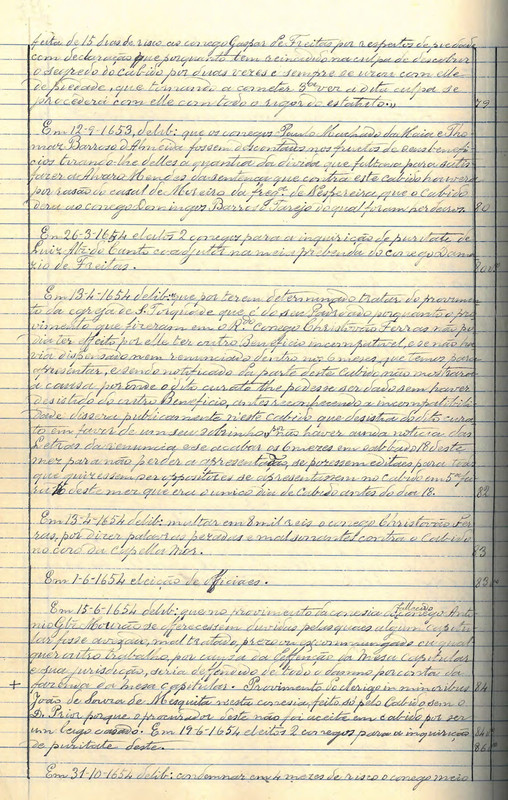 feita de 15 dias de risco ao conego Gaspar de Freitas por respeitos de piedade
com declaração que porquanto tem reincidido na culpa de descobrir
o segredo do cabido por duas vezes e sempre se usou com elle
de piedade, que tornando a cometer 3ª vez a dita culpa se
procederá com elle com todo o rigor do estatuto.,, 79
Em 12-9-1653, delib: que os conegos Paulo Machado da Maia e Tho
maz Barroso d'Almeira fossem descontados nos fructos de seus benefi
cios tirando-lhe delles a quantia da divida que faltava para satis
fazer a Alvaro Mendes da sentença que contra este Cabido houvera
por razão do casal de Mereiro da freg.ª de Espereira, que o Cabido
dera ao conego Domingos Barroso do qual foram herdeiros 80
Em 26-3-1654 eleitos 2 conegos para a inquirição de puritate de
Luiz do Canto coadjutor na meia prebenda do conego Dama
zio de Freitas. 80
Em 13-4-1654 delib: que por terem determinado tratar do provimen
to da egreja de S. Torquade que é do seu Padroado porquanto o pro
vimento que fizeram em o R.do Conego Christovão Ferras não po
dia ter effeito por elle ter outro Beneficio incompativel, e se não ha
via dispensado nem renunciado dentro nos 6 mezes que temos para
apresentar, e sendo notificado da parte deste Cabido não mostrara
a causa por onde o dito curato lhe podesse ser dado sem haver
desistido do outro Beneficio, antes conhecendo a incompatibili
dade dissera publicamente neste Cabido que desistia do dito cura
to em favor de um seu sobrinho não haver ainda noticia das
Letras da renuncia e se acabar os 6 mezes em sabbado 18 deste
mez para não perder a apresentação, se pozessem editaes para todos
que quizessem ser oppositores se apresentassem no cabido em 5ª fei
ra 16 deste mez que era o unico dia de Cabido antes do dia 18. 82
Em 13-4-1654 delib: multar em 8 mil reis o conego Christovão Fer
ras, por dizer palavras pezadas e mal soantes contra o Cabido
no coro da Capella Mór. 83
Em 1-6-1654 eleição de officiaes. 83
Em 15-6-1654 delib: que no provimento da conesia do fallecido conego Anto
nio Mourão se offerecessem duvidas pelas quaes algum capitu
lar fosse avexado, mal tratado, prezo ou excommungado ou qual
quer outro trabalho, por causa da deffensão da Meza Capitular
e sua jurisdição, seria deffendido de todo o damno por conta da
fazenda da meza capitular. Provimento do clerigo in minoribus 84
João de Sousa de Mesquita nesta conesia, feito só pelo Cabido sem o
D. Prior porque o procurador deste não foi acceite em cabido por ser
um leigo casado. Em 19-6-1654 eleitos 2 conegos para a inquirição 84
de puritate deste. 86
Em 31-10-1654 delib: condemnar em 4 mezes de risco o conego meio